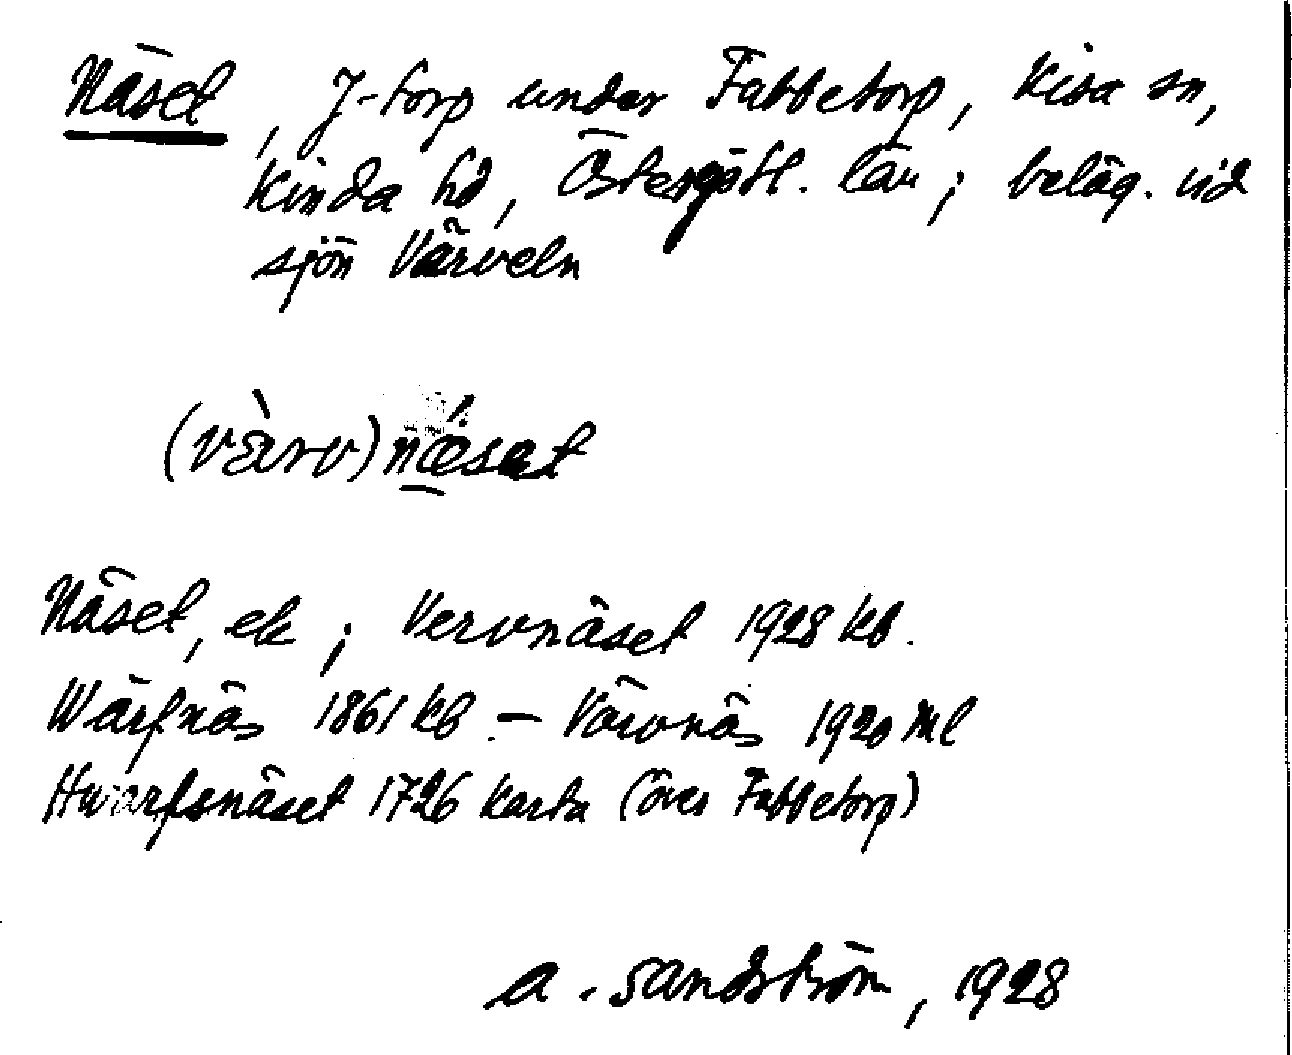 Näset, J-torp under Fabbetorp, Kisa sn,
Kinda hd, Östergötl. län; beläg. vid
sjön Värveln
(vä̀rv)nǽsat
Näset, ek; Vervnäset 1928 kb.
Wärfnäs 1861 kb. – Värvnäs 1920 Ml
Hwarfsnäset 1726 karta (över Fabbetorp)
A. Sandström, 1928